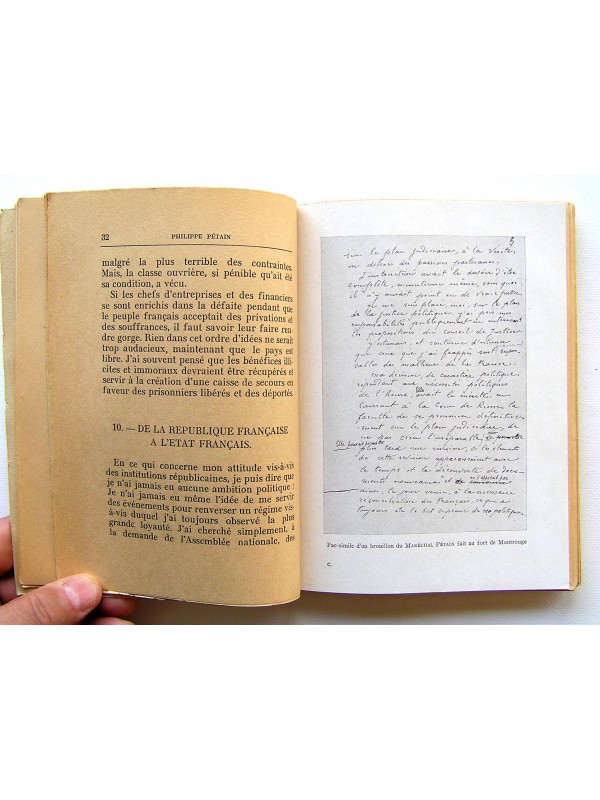 32 PHILIPPE PÉTAIN
malgré la plus terrible des contraintes.
Mais, la classe ouvrière, si pénible qu'ait été
sa condition, a vécu.
Si les chefs d'entreprises et des financiers
se sont enrichis dans la défaite pendant que
le peuple français acceptait des privations et
des souffrances, il faut savoir leur faire ren-
dre gorge. Rien dans cet ordre d'idées ne serait
trop audacieux, maintenant que le pays est
libre. J'ai souvent pensé que les bénéfices illi-
cites et immoraux devraient être récupérés et
servir à la création d'une caisse de secours en
faveur des prisonniers libérés et des déportés.
10. — DE LA REPUBLIQUE FRANÇAISE
A L'ETAT FRANÇAIS.
En ce qui concerne mon attitude vis-à-vis
des institutions républicaines, je puis dire que
je n'ai jamais eu aucune ambition politique :
Je n'ai jamais eu même l'idée de me servir
des événements pour renverser un régime vis-
à-vis duquel j'ai toujours observé la plus
grande loyauté. J'ai cherché simplement, à
la demande de l'Assemblée nationale, des
sur le plan judiciaire, à la vérité,
en dehors des passions partisanes.
L'instruction avait le devoir d'être
complète, minutieuse même, sans quoi
il n'y aurait point eu de vraie justice
de la justice politique, j'ai pris mes
responsabilités publiquement en
propositions du conseil de Justice
que ceux que j'ai frappés sont
des malheurs de la France.
Ma décision, de caractère politique
répondant aux nécessités politiques
de l'heure, avait le mérite, en
laissant à la Cour de Riom la
faculté de se prononcer
sur le plan judiciaire, de
ne pas créer l'irréparable
plus tard une révision, si les éléments
de cette révision apparaissent avec
le temps et la découverte de docu-
ments nouveaux et de
ainsi, le jour venu, à la nécessaire
réconciliation des Français, ce qui a
toujours été le but suprême de ma politique.
Fac-similé d'un brouillon du MARÉCHAL PÉTAIN fait au fort de Montrouge
C.